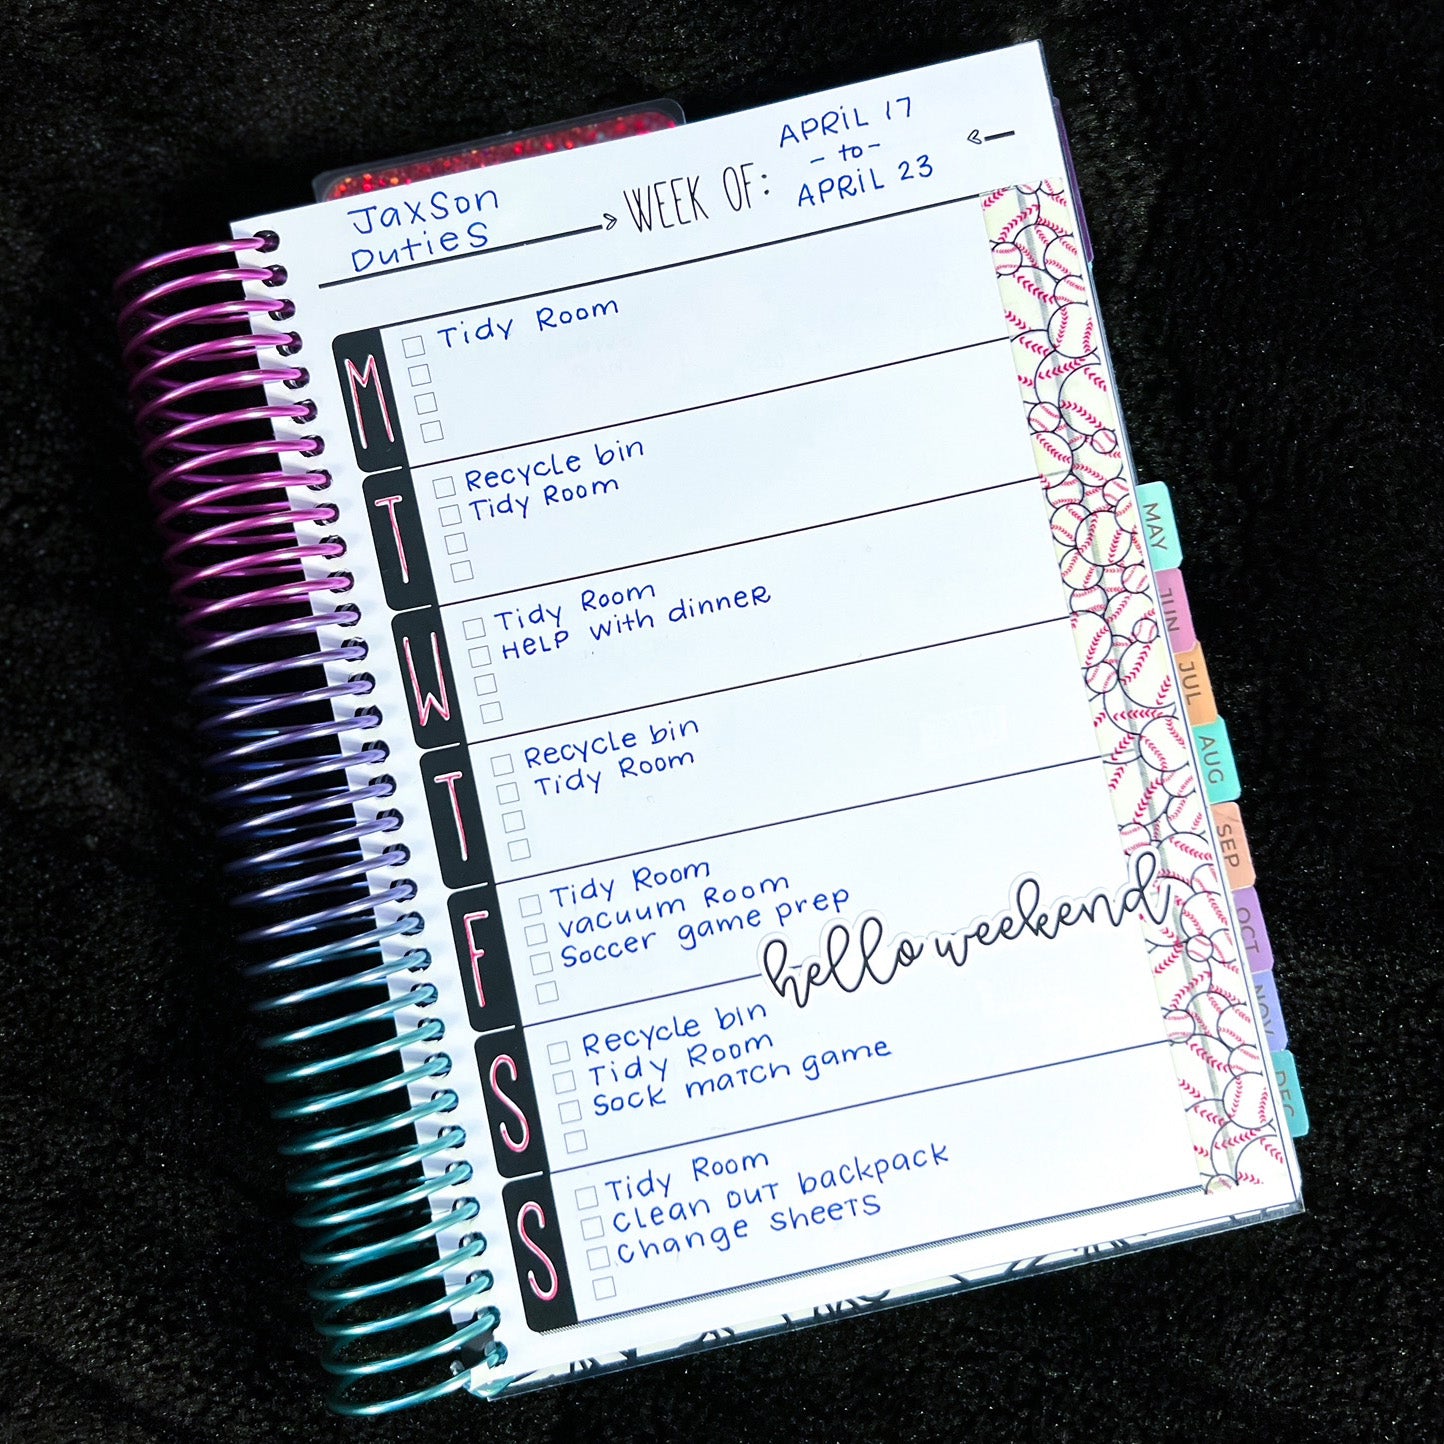 Jaxson
Duties
WEEK OF:
APRIL 17
- to -
APRIL 23
M
Tidy Room
T
Recycle bin
Tidy Room
W
Tidy Room
HELP with dinner
T
Recycle bin
Tidy Room
F
Tidy Room
vacuum Room
Soccer game prep
hello weekend
S
Recycle bin
Tidy Room
Sock match game
S
Tidy Room
Clean out backpack
Change Sheets
MAY
JUN
JUL
AUG
SEP
OCT
NOV
DEC